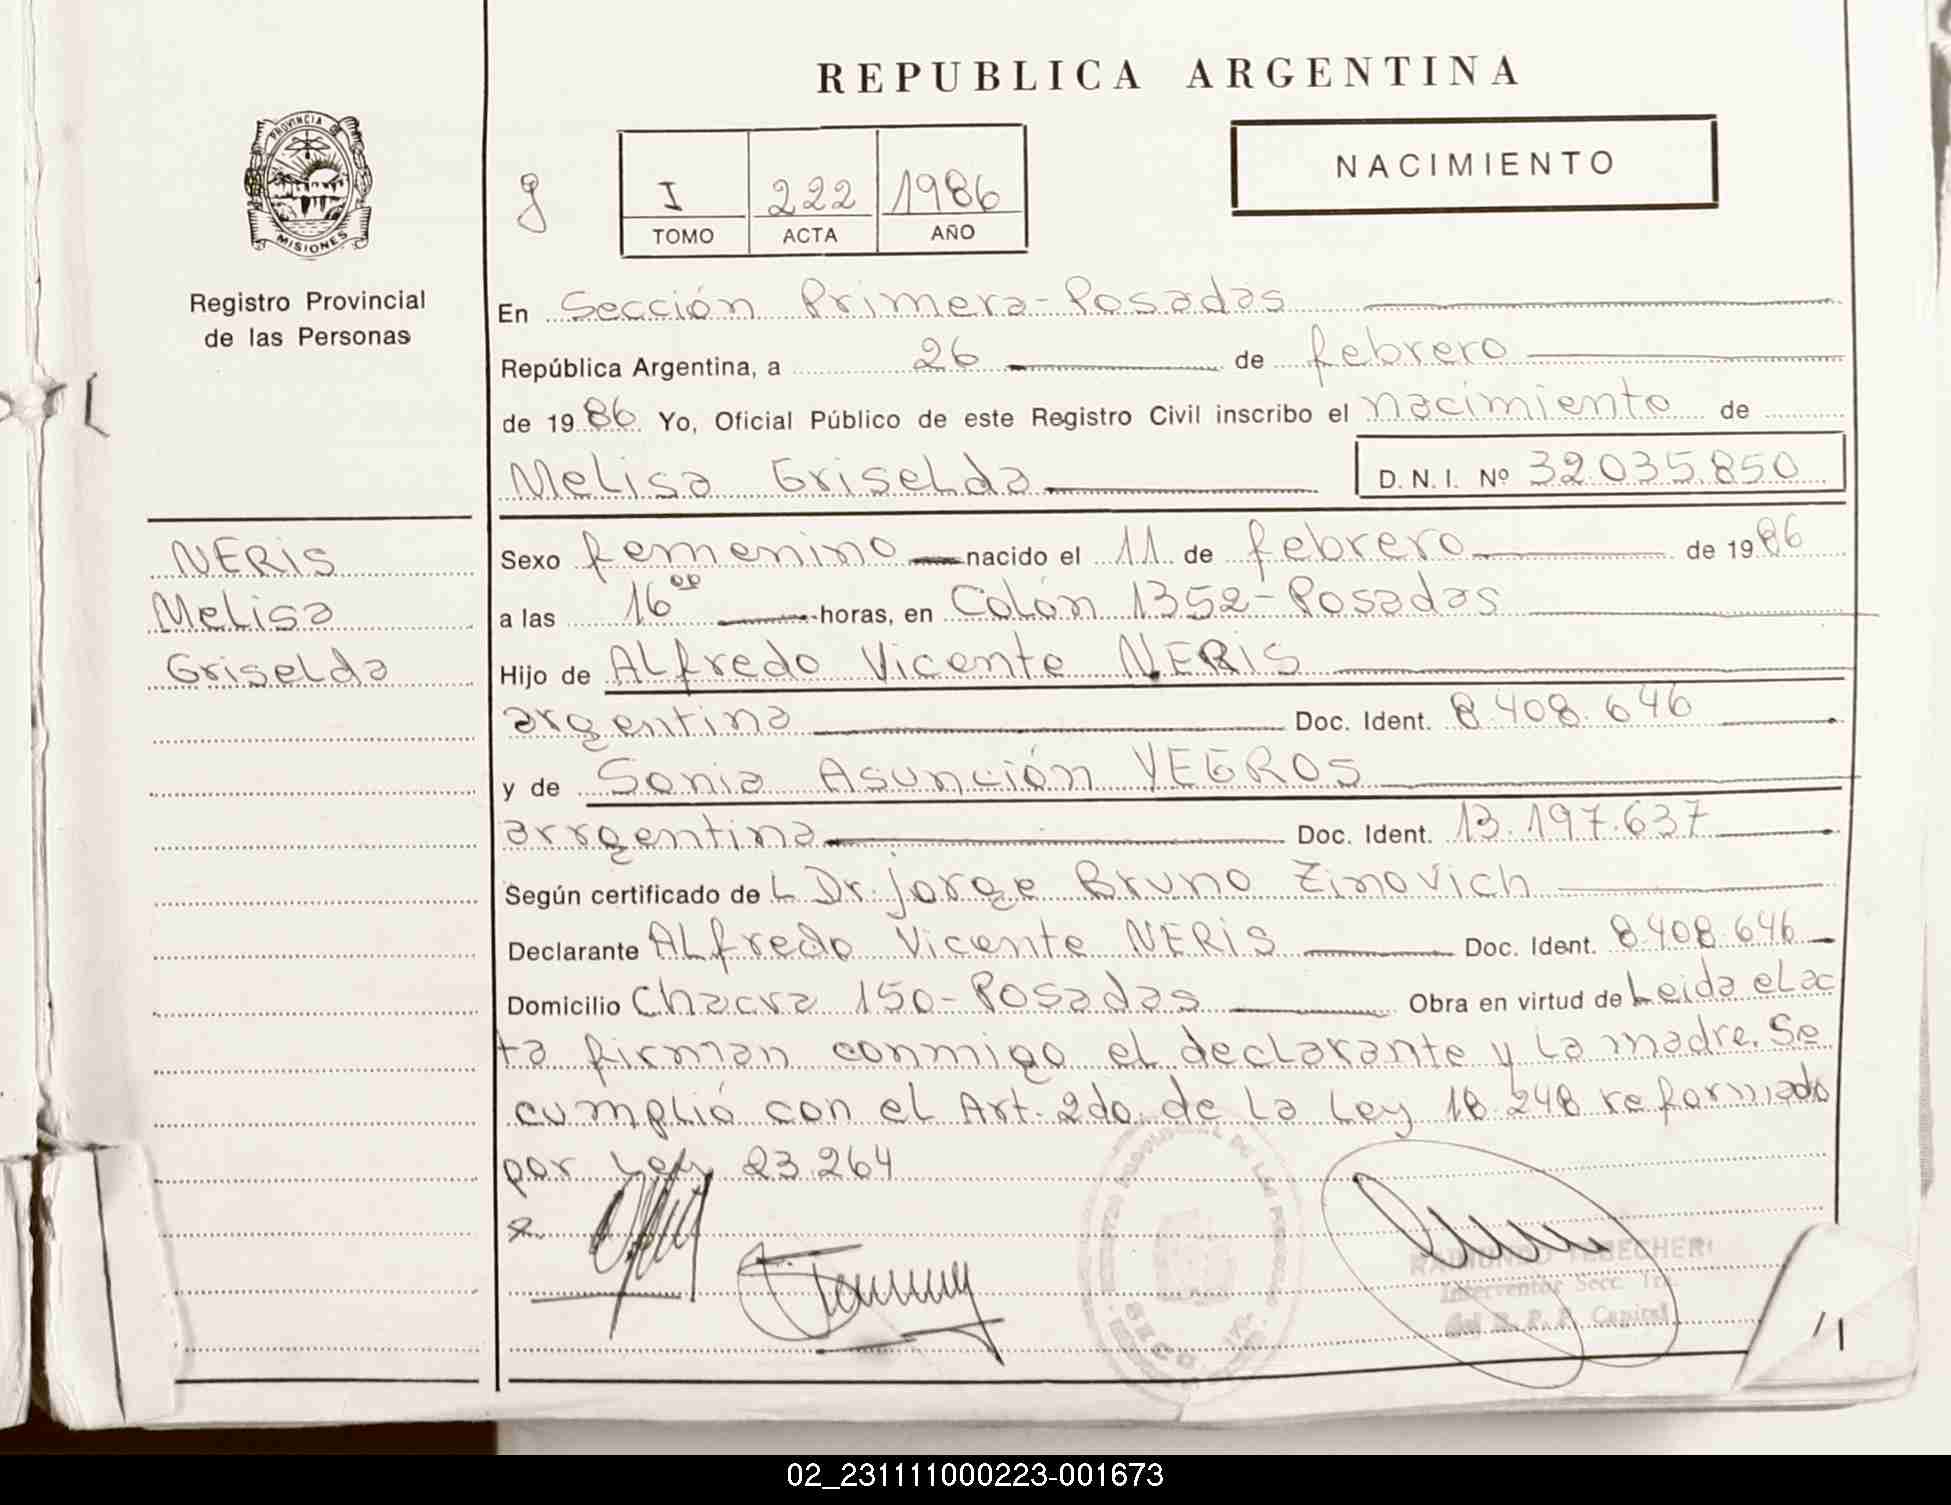 REPUBLICA ARGENTINA
PROVINCIA DE
MISIONES
Registro Provincial
de las Personas
g
I 222 1986
TOMO ACTA AÑO
NACIMIENTO
En Sección Primera-Posadas
República Argentina, a 26 de febrero
de 1986 Yo, Oficial Público de este Registro Civil inscribo el nacimiento de
Melisa Griselda D. N. I. Nº 32.035.850
NERIS
Melisa
Griselda
Sexo femenino nacido el 11 de febrero de 1986
a las 16⁰⁰ horas, en Colón 1352-Posadas
Hijo de Alfredo Vicente NERIS
argentina Doc. Ident. 8.408.646
y de Sonia Asunción YEGROS
arrgentina Doc. Ident. 13.197.637
Según certificado de L Dr. Jorge Bruno Zinovich
Declarante Alfredo Vicente NERIS Doc. Ident. 8.408.646
Domicilio Chacra 150-Posadas Obra en virtud de Leida el ac
ta firman conmigo el declarante y la madre. Se
cumplió con el Art. 2do. de la Ley 18.248 reformado
por Ley 23.264
RAIMUNDO
Interventor Secc.
del R. P. P. Capital
02_231111000223-001673